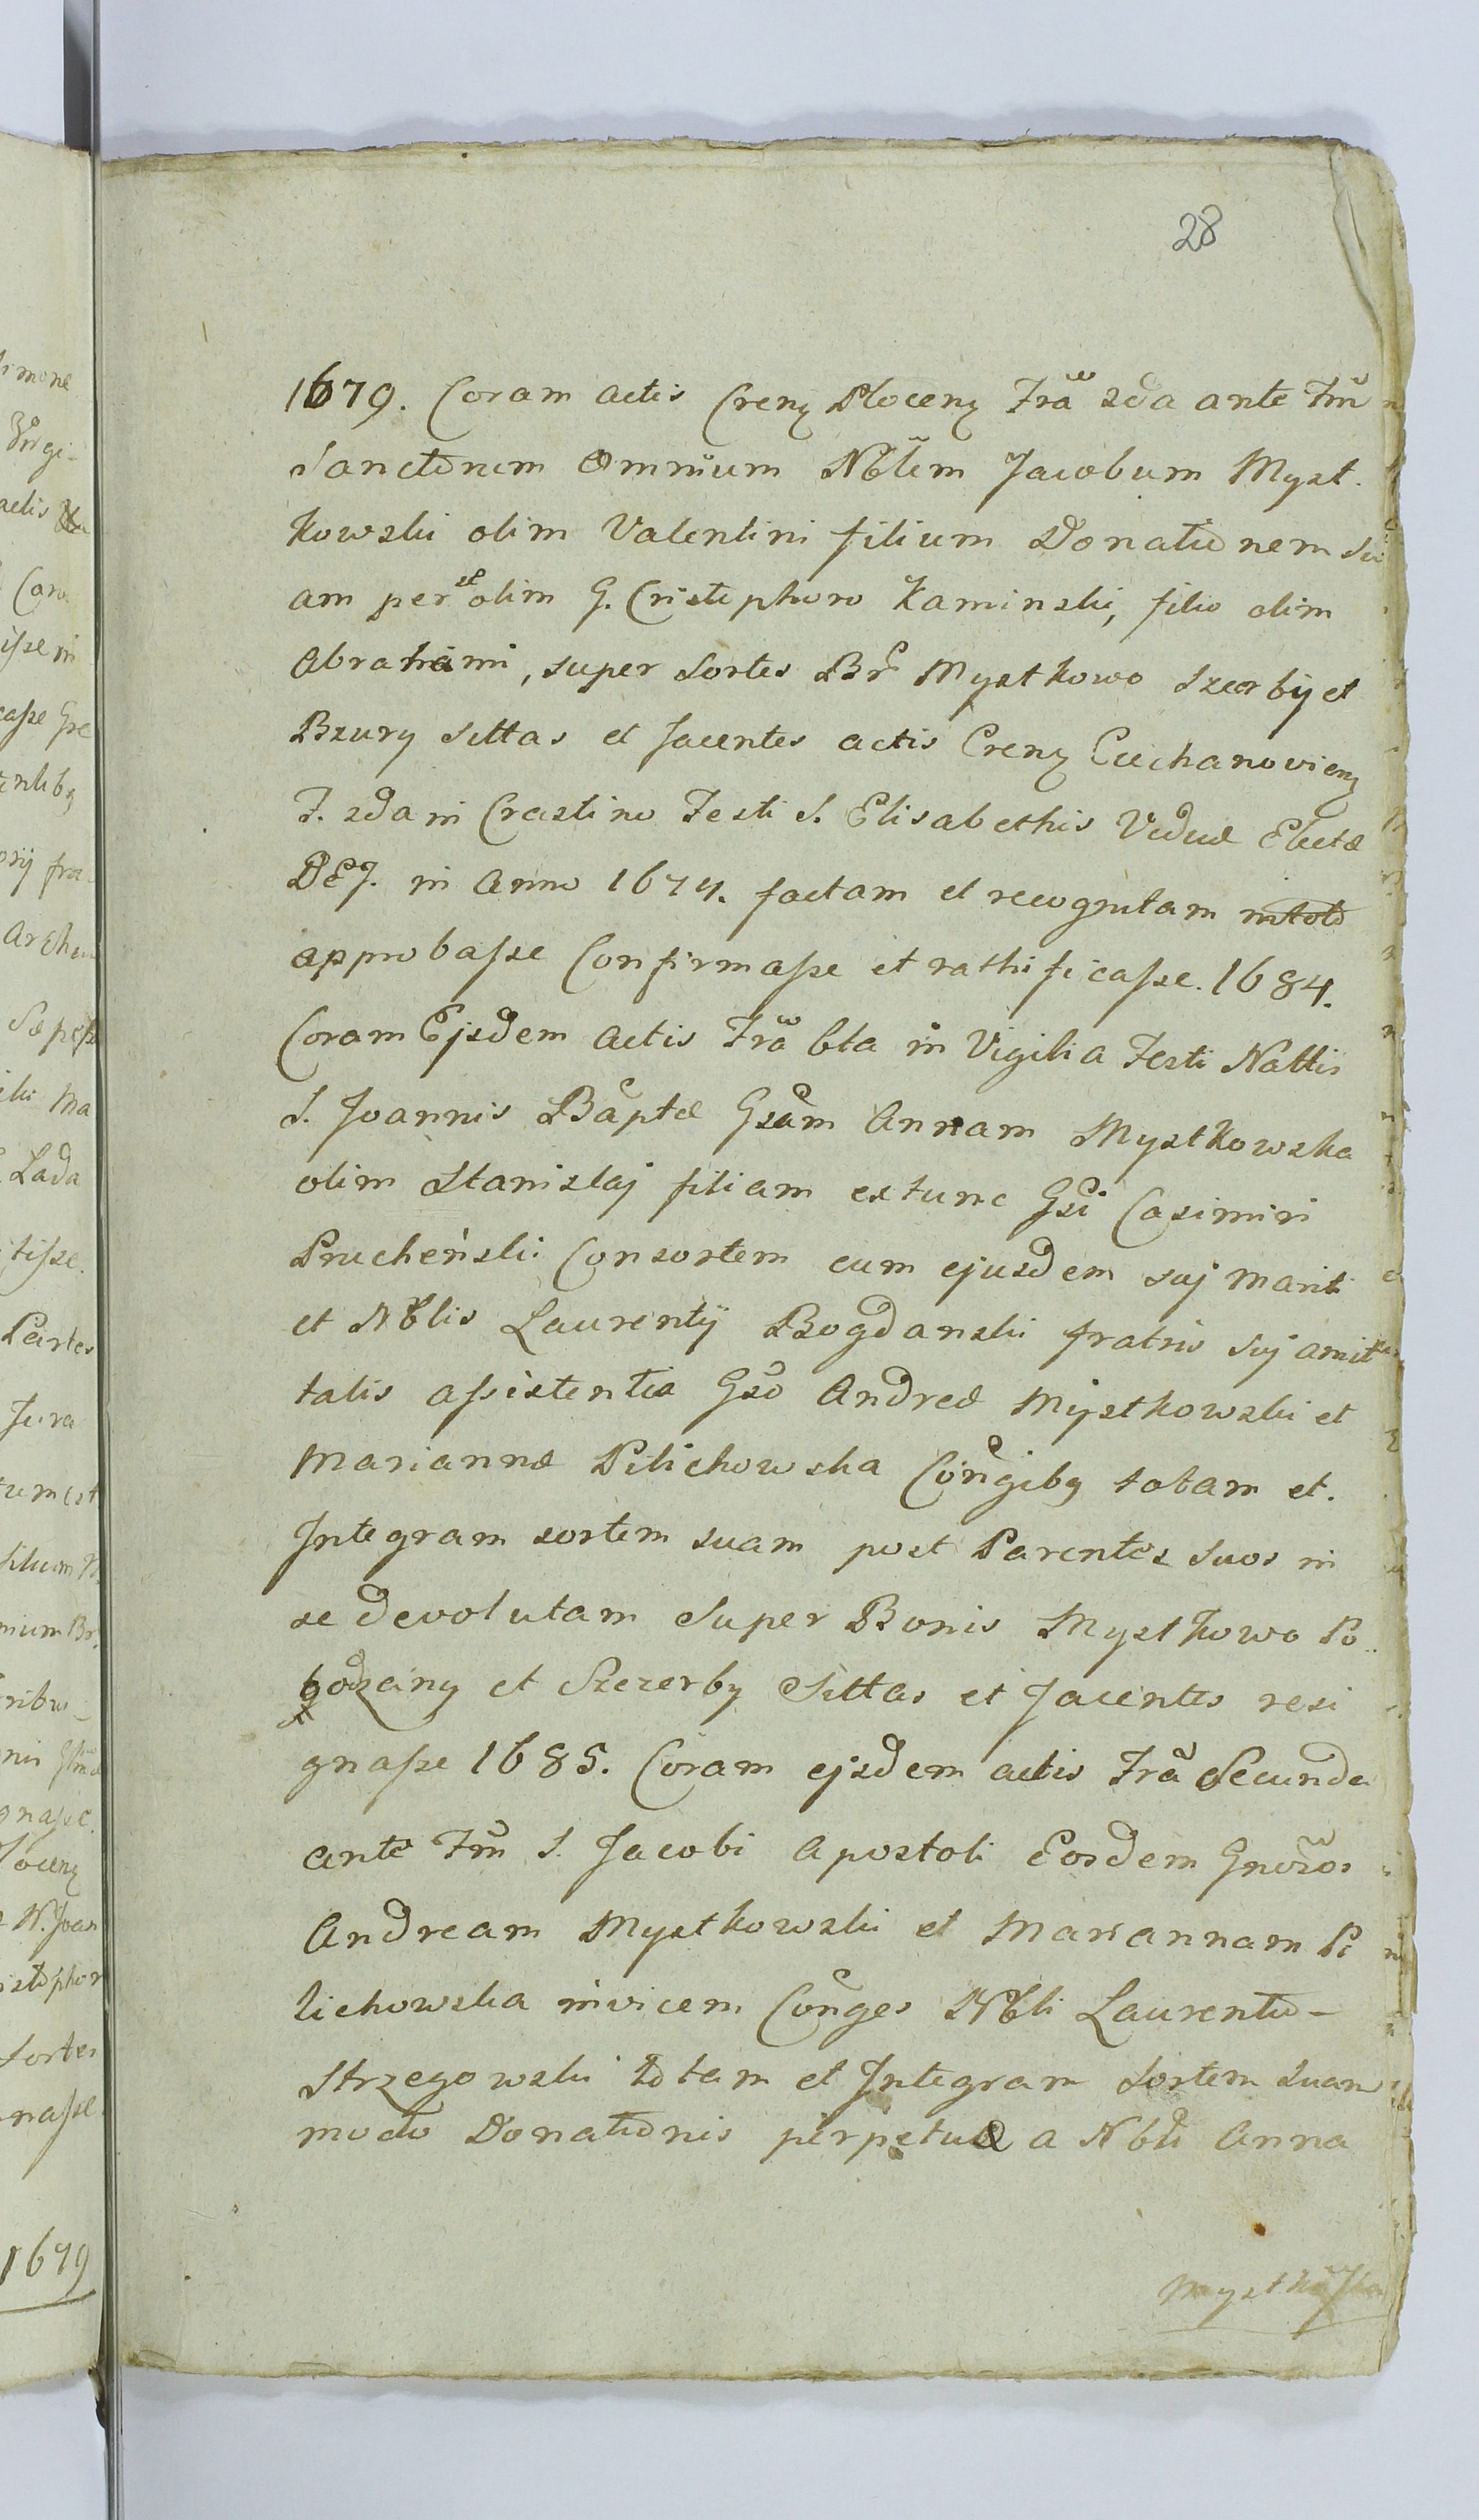 28
1679. Coram actis Creng Ploceng Frã 2da ante Fm̃
Sanctorum Omnium Nblem Jacobum Myst.
kowski olim Valentini filium Donationem su
am per se olim G. Cristophoro Kaminski, filio olim
Abrahami, super Sortes Br̃ Mystkowo Szcerby et
Bzury sittas et Jacentes actis Creng Ciechanovieng
F. 2da in Crastino Festi S. Elisabethis Viduæ Electæ
DEJ. in Anno 1674. factam et recognitam intoto
approbaſse Confirmaſse et rathificaſse. 1684.
Coram Ejsdem actis Frã 6ta in Vigilia Festi Nattis
S. Joannis Bãptæ Gsãm Annam Mystkowska
olim Stanislaj filiam extunc Gsi Casimiri
Prucheński Consortem cum ejusdem suj mariti
et Nblis Laurentij Bogdanski fratris suj amit
talis aſsistentia Gso Andreæ Mystkowski et
Mariannæ Pilichowska Cõngibg totam et.
Integram sortem suam post Parentes suos in
se devolutam super Bonis Mystkowo Po
godzing et Szczerby Sittas et Jacentes resi
gnaſse 1685. Coram ejsdem actis Frã Secunda
ante Fm̃ S. Jacobi Apostoli Eosdem Gnõsos
Andream Mystkowski et Mariannam Pi
lichowska invicem Cõnges Nbli Laurentio-
Strzegowski totam et Integram Sortem suam
modo Donationis perpetuæ a Nbli Anna